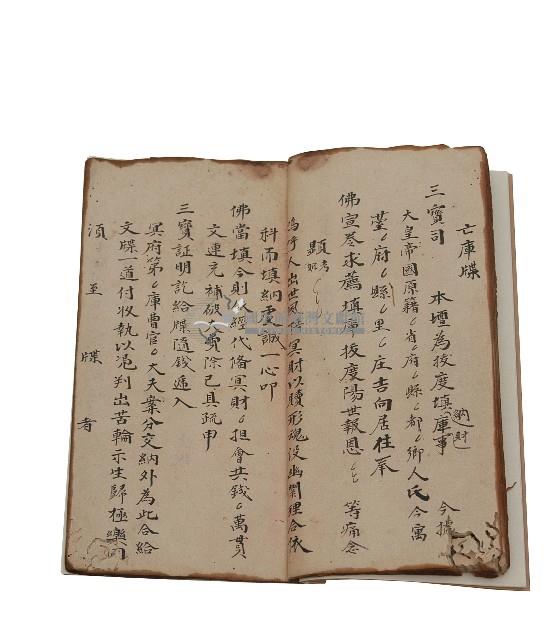 亡庫牒
三寶司　本壇為拔度填納庫財事　今據
大皇帝國原籍　省　府　縣　都　鄉人氏今寓
臺　府　縣　里　庄吉向居住奉
佛宣卷求薦填庫拔度陽世報恩　等痛念
顯考妣
人出世風　冥財以贖形魂沒幽關理合依
科而填納虔誠一心叩
佛當填今則　經代備冥財　担會共錢　萬貫
文連充補破　實除已具疏申
三寶証明訖給牒隨錢遞入
冥府第　庫曹官　大夫案分交納外為此合給
文牒一道付收執以憑判出苦輪示生歸極樂
須至牒者